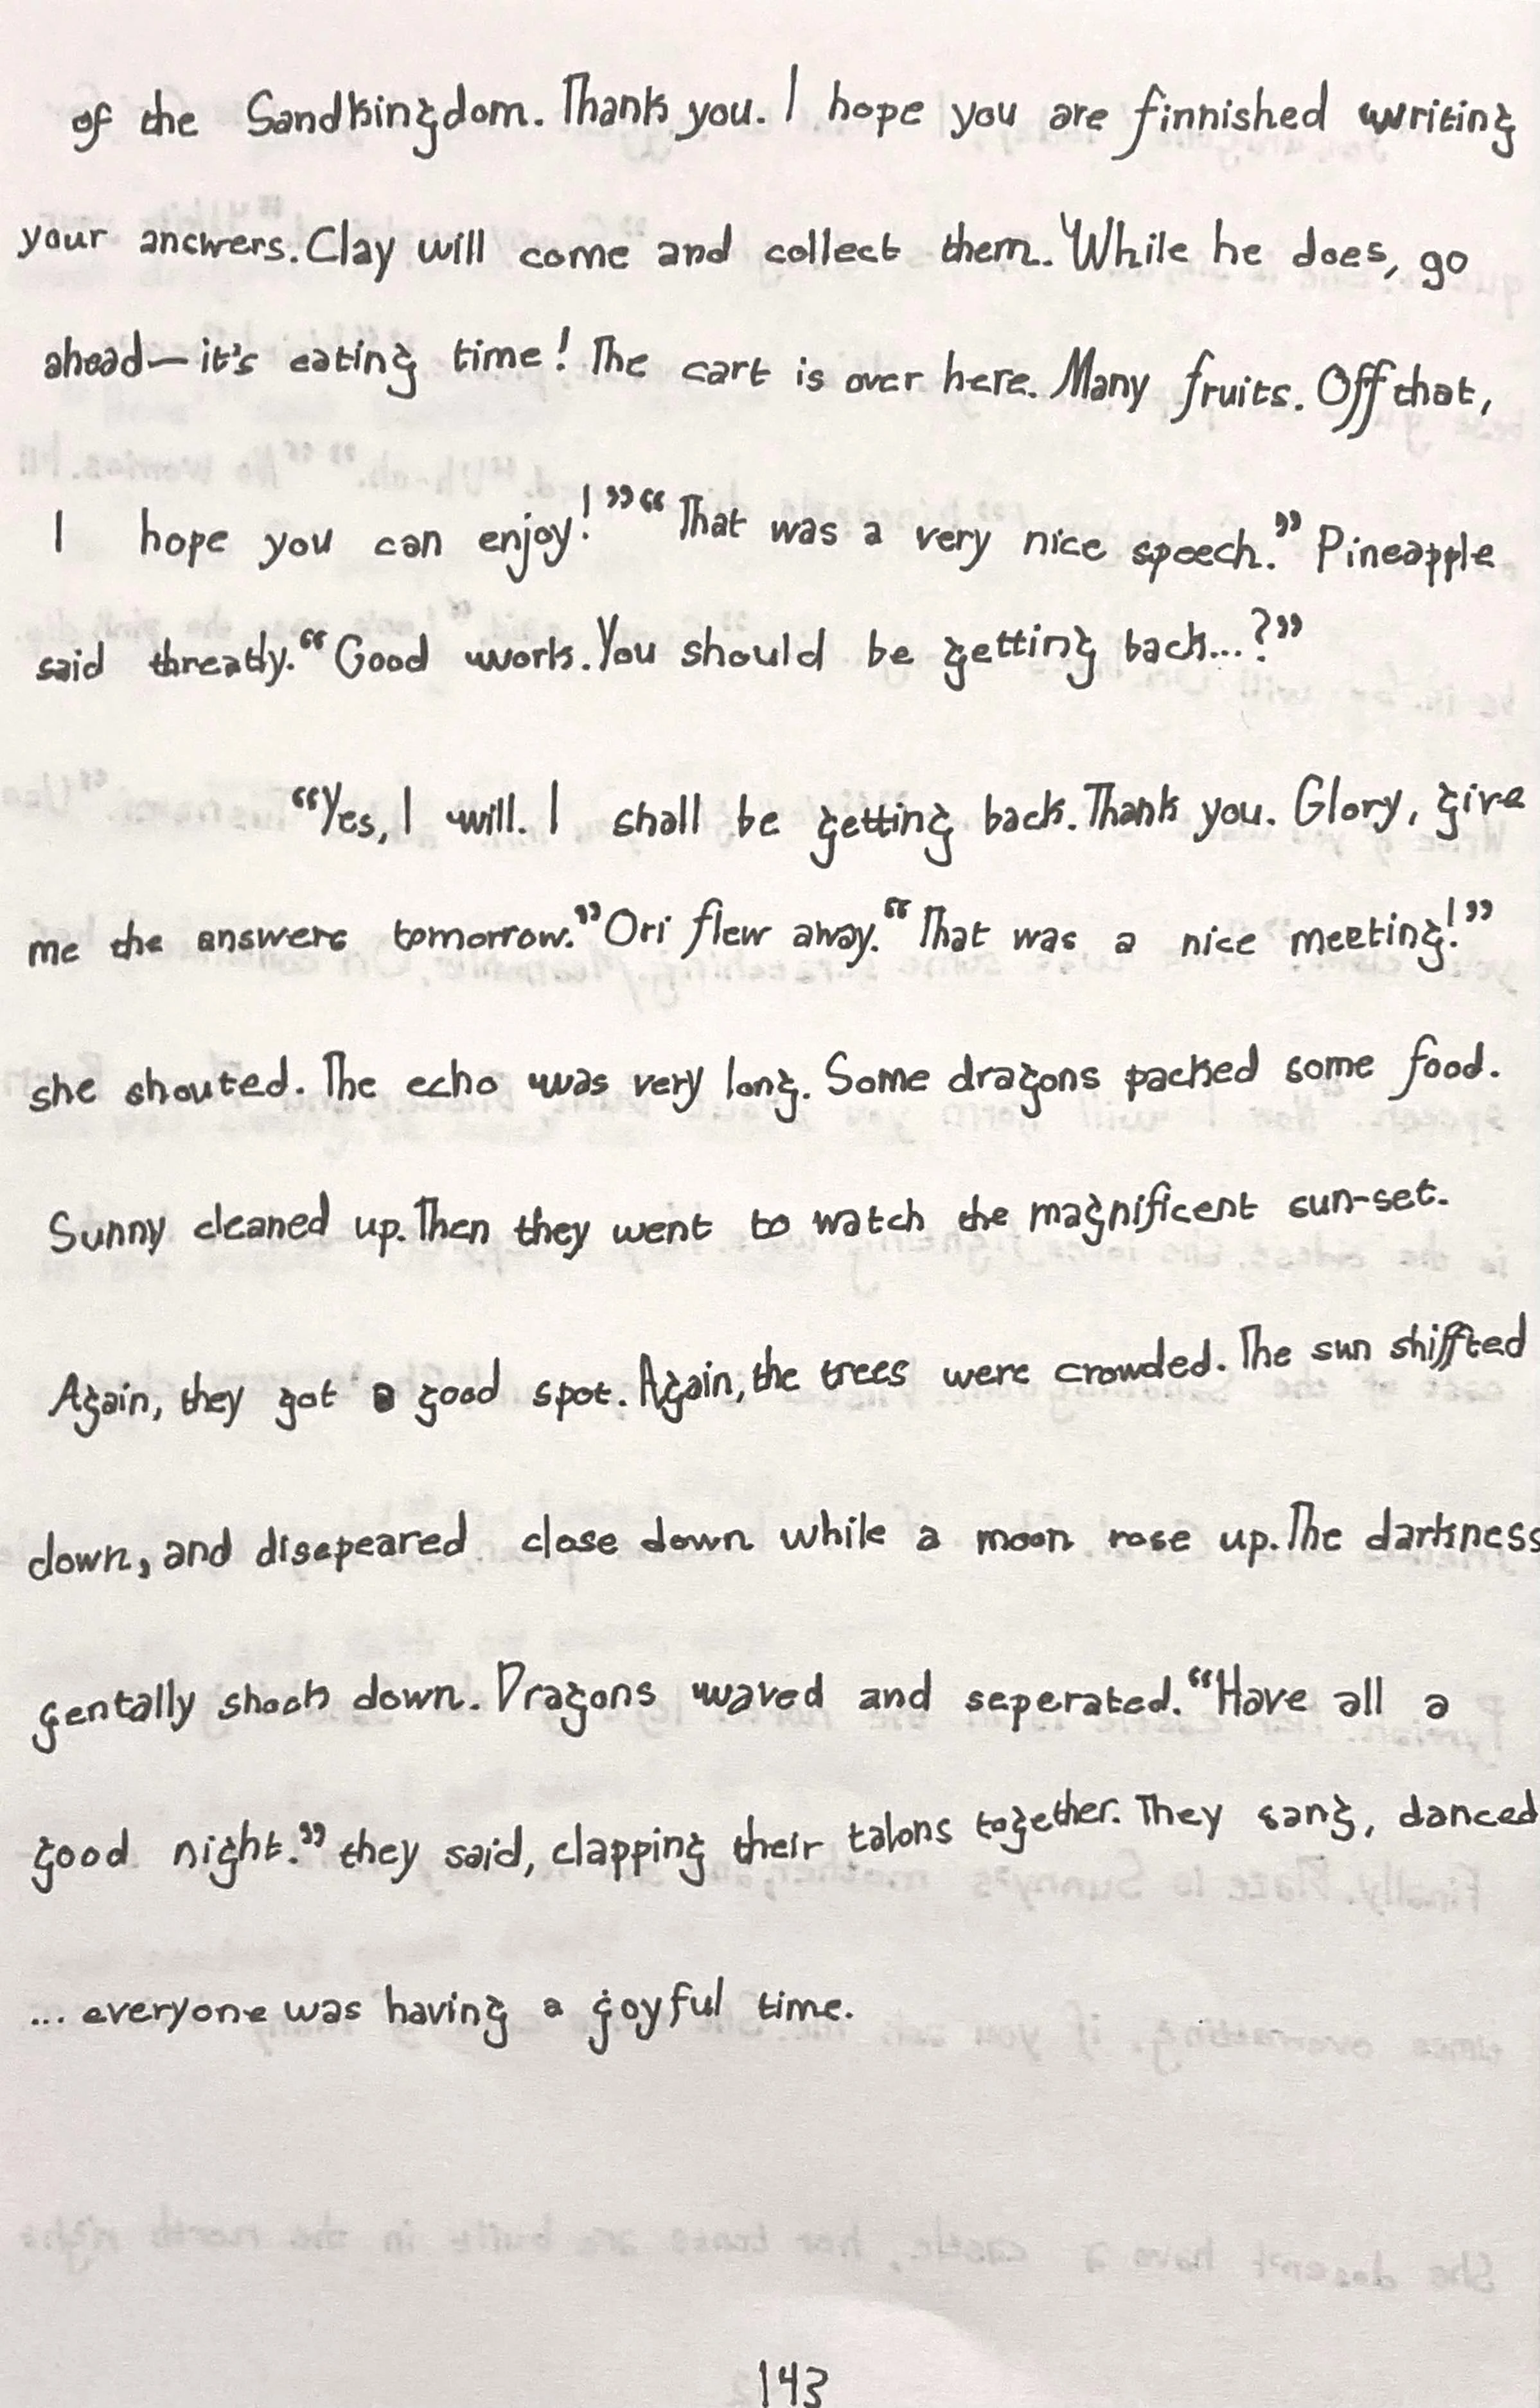 of the Sandkingdom. Thank you. I hope you are finnished writing
your ancwers. Clay will come and collect them. While he does, go
ahead—it's eating time! The cart is over here. Many fruits. Off that,
I hope you can enjoy!” “That was a very nice speech.” Pineapple
said threatly. “Good work. You should be getting back...?”
“Yes, I will. I shall be getting back. Thank you. Glory, give
me the answers tomorrow.” Ori flew away. “That was a nice meeting!”
she shouted. The echo was very long. Some dragons packed some food.
Sunny cleaned up. Then they went to watch the magnificent sun-set.
Again, they got a good spot. Again, the trees were crowded. The sun shiffted
down, and disepeared close down while a moon rose up. The darkness
gentally shook down. Dragons waved and seperated. “Have all a
good night.” they said, clapping their talons together. They sang, danced
... everyone was having a goyful time.
143